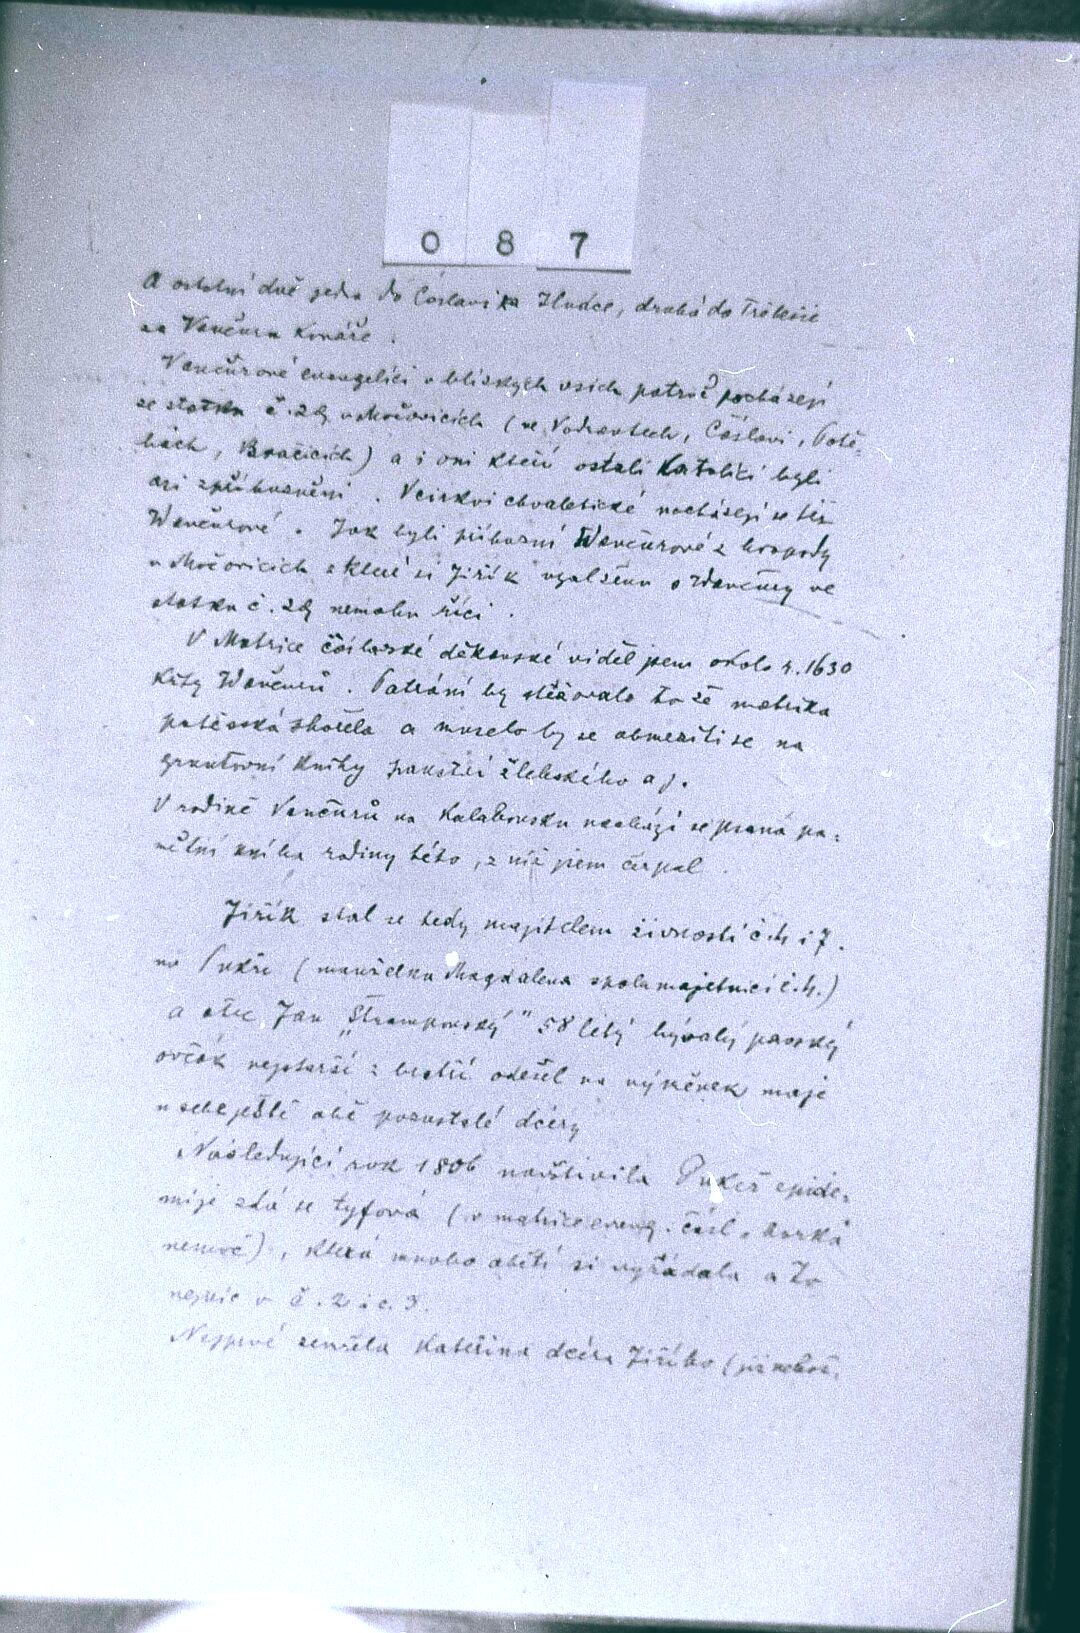 0 8 7
A ostatní dvě jedna do Čáslavi za Hudce, druhá do
za Vančuru kováře.
Vančurové evangelíci v blízkých vsích patrně pocházejí
ze statku č. 29 v Močovicích (ve Vodrantech, Čáslavi, Potě-
hách, Bračicích) a i oni kteří ostali Katolíci byli
asi spříbuzněni. V církvi chvaletické nacházejí se též
Wančurové. Jak byli příbuzní Wančurové z hospody
v Močovicích z které si Jiřík vzal ženu s Wančury ve
statku č. 29 nemohu říci.
V Matrice čáslavské děkanské viděl jsem okolo r. 1630
Káty Wančurů. Pátrání by stěžovalo to že matrika
potěhská shořela a muselo by se obmeziti se na
gruntovní knihy panství žlebského a j.
V rodině Vančurů na Kalabousku nachází se psaná pa-
mětní kniha rodiny této, z níž jsem čerpal.
Jiřík stal se tedy majitelem živností č. 4 i 7.
na Pukři (manželka Magdalena spolumajetnicí č. 4.)
a otec Jan „Štrampouský" 58 letý bývalý panský
ovčák nejstarší z bratří odešel na výměnek maje
u sebe ještě obě pozůstalé dcery
Následující rok 1806 navštívila Pukř epide-
mije zdá se tyfová (v matrice evang. čásl. horká
nemoc), která mnoho obětí si vyžádala a to
nejvíc v č. 2 i č. 3.
Nejprvé zemřela Kateřina dcera Jiřího (již nebož.